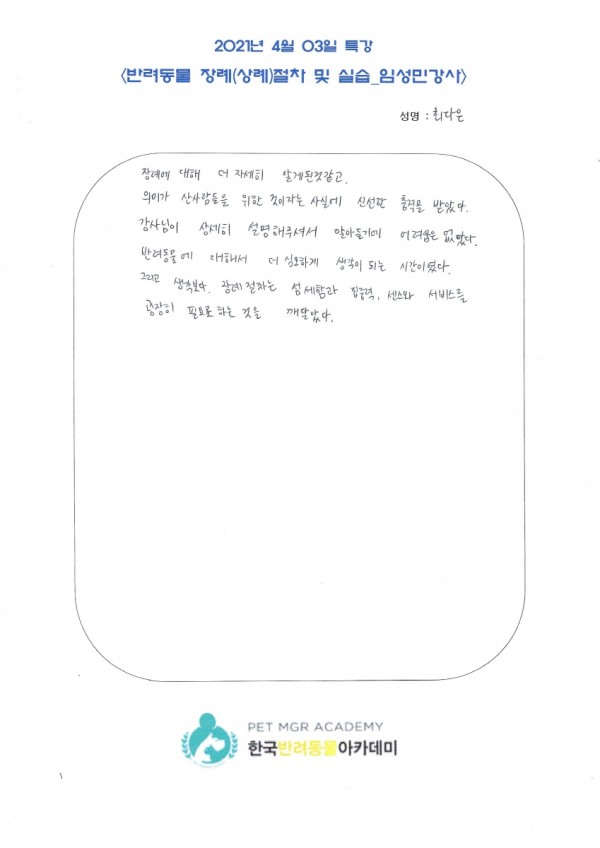 2021년 4월 03일 특강
<반려동물 장례(상례)절차 및 실습_임성민강사>
성명 : 최다은
장례에 대해 더 자세히 알게된것같고.
의미가 산사람들을 위한 것이라는 사실에 신선한 충격을 받았다.
강사님이 상세히 설명해주셔서 알아듣기에 어려움은 없었다.
반려동물에 대해서 더 심오하게 생각이 되는 시간이였다.
그리고 생각보다. 장례절차는 섬세함과 집중력, 센스와 서비스를
굉장히 필요로 하는 것을 깨달았다.
PET MGR ACADEMY
한국반려동물아카데미